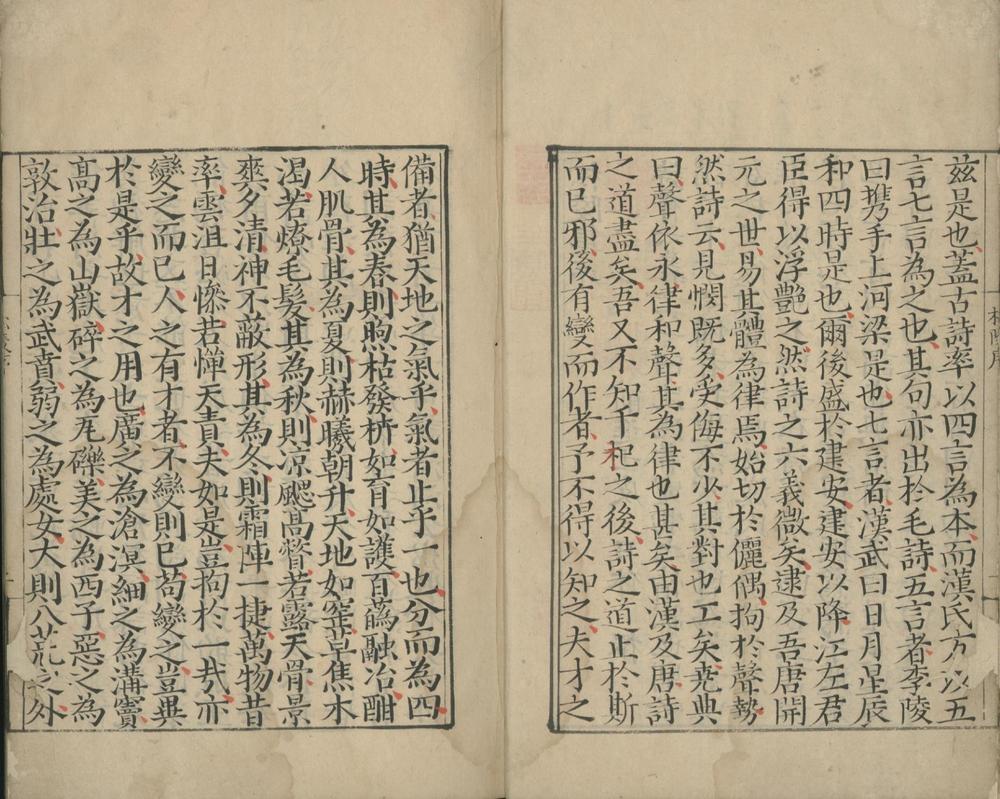 茲是也蓋古詩率以四言為本而漢氏方以五
言七言為之也其句亦出於毛詩五言者李陵
曰攜手上河梁是也七言者漢武曰日月星辰
和四時是也爾後盛於建安建安以降江左君
臣得以浮艷之然詩之六義微矣逮及吾唐開
元之世易其體為律焉始切於儷偶拘於聲勢
然詩云見憫既多受侮不少其對也工矣堯典
曰聲依永律和聲其為律也甚矣由漢及唐詩
之道盡矣吾又不知千祀之後詩之道止於斯
而已邪後有變而作者予不得以知之夫才之
備者猶天地之氣乎氣者止乎一也分而為四
時其為春則煦枯發枿如育如護百蘤融冶酣
人肌骨其為夏則赫曦朝升天地如窯草焦木
渴若燎毛髮其為秋則涼颸高瞥若露天骨景
爽夕清神不蔽形其為冬則霜陣一捷萬物昔
率雲沮日慘若憚天責夫如是豈拘於一哉亦
變之而已人之有才者不變則已苟變之豈異
於是乎故才之用也廣之為滄溟細之為溝竇
高之為山嶽碎之為瓦礫美之為西子惡之為
敦洽壯之為武賁弱之為處女大則八荒之外